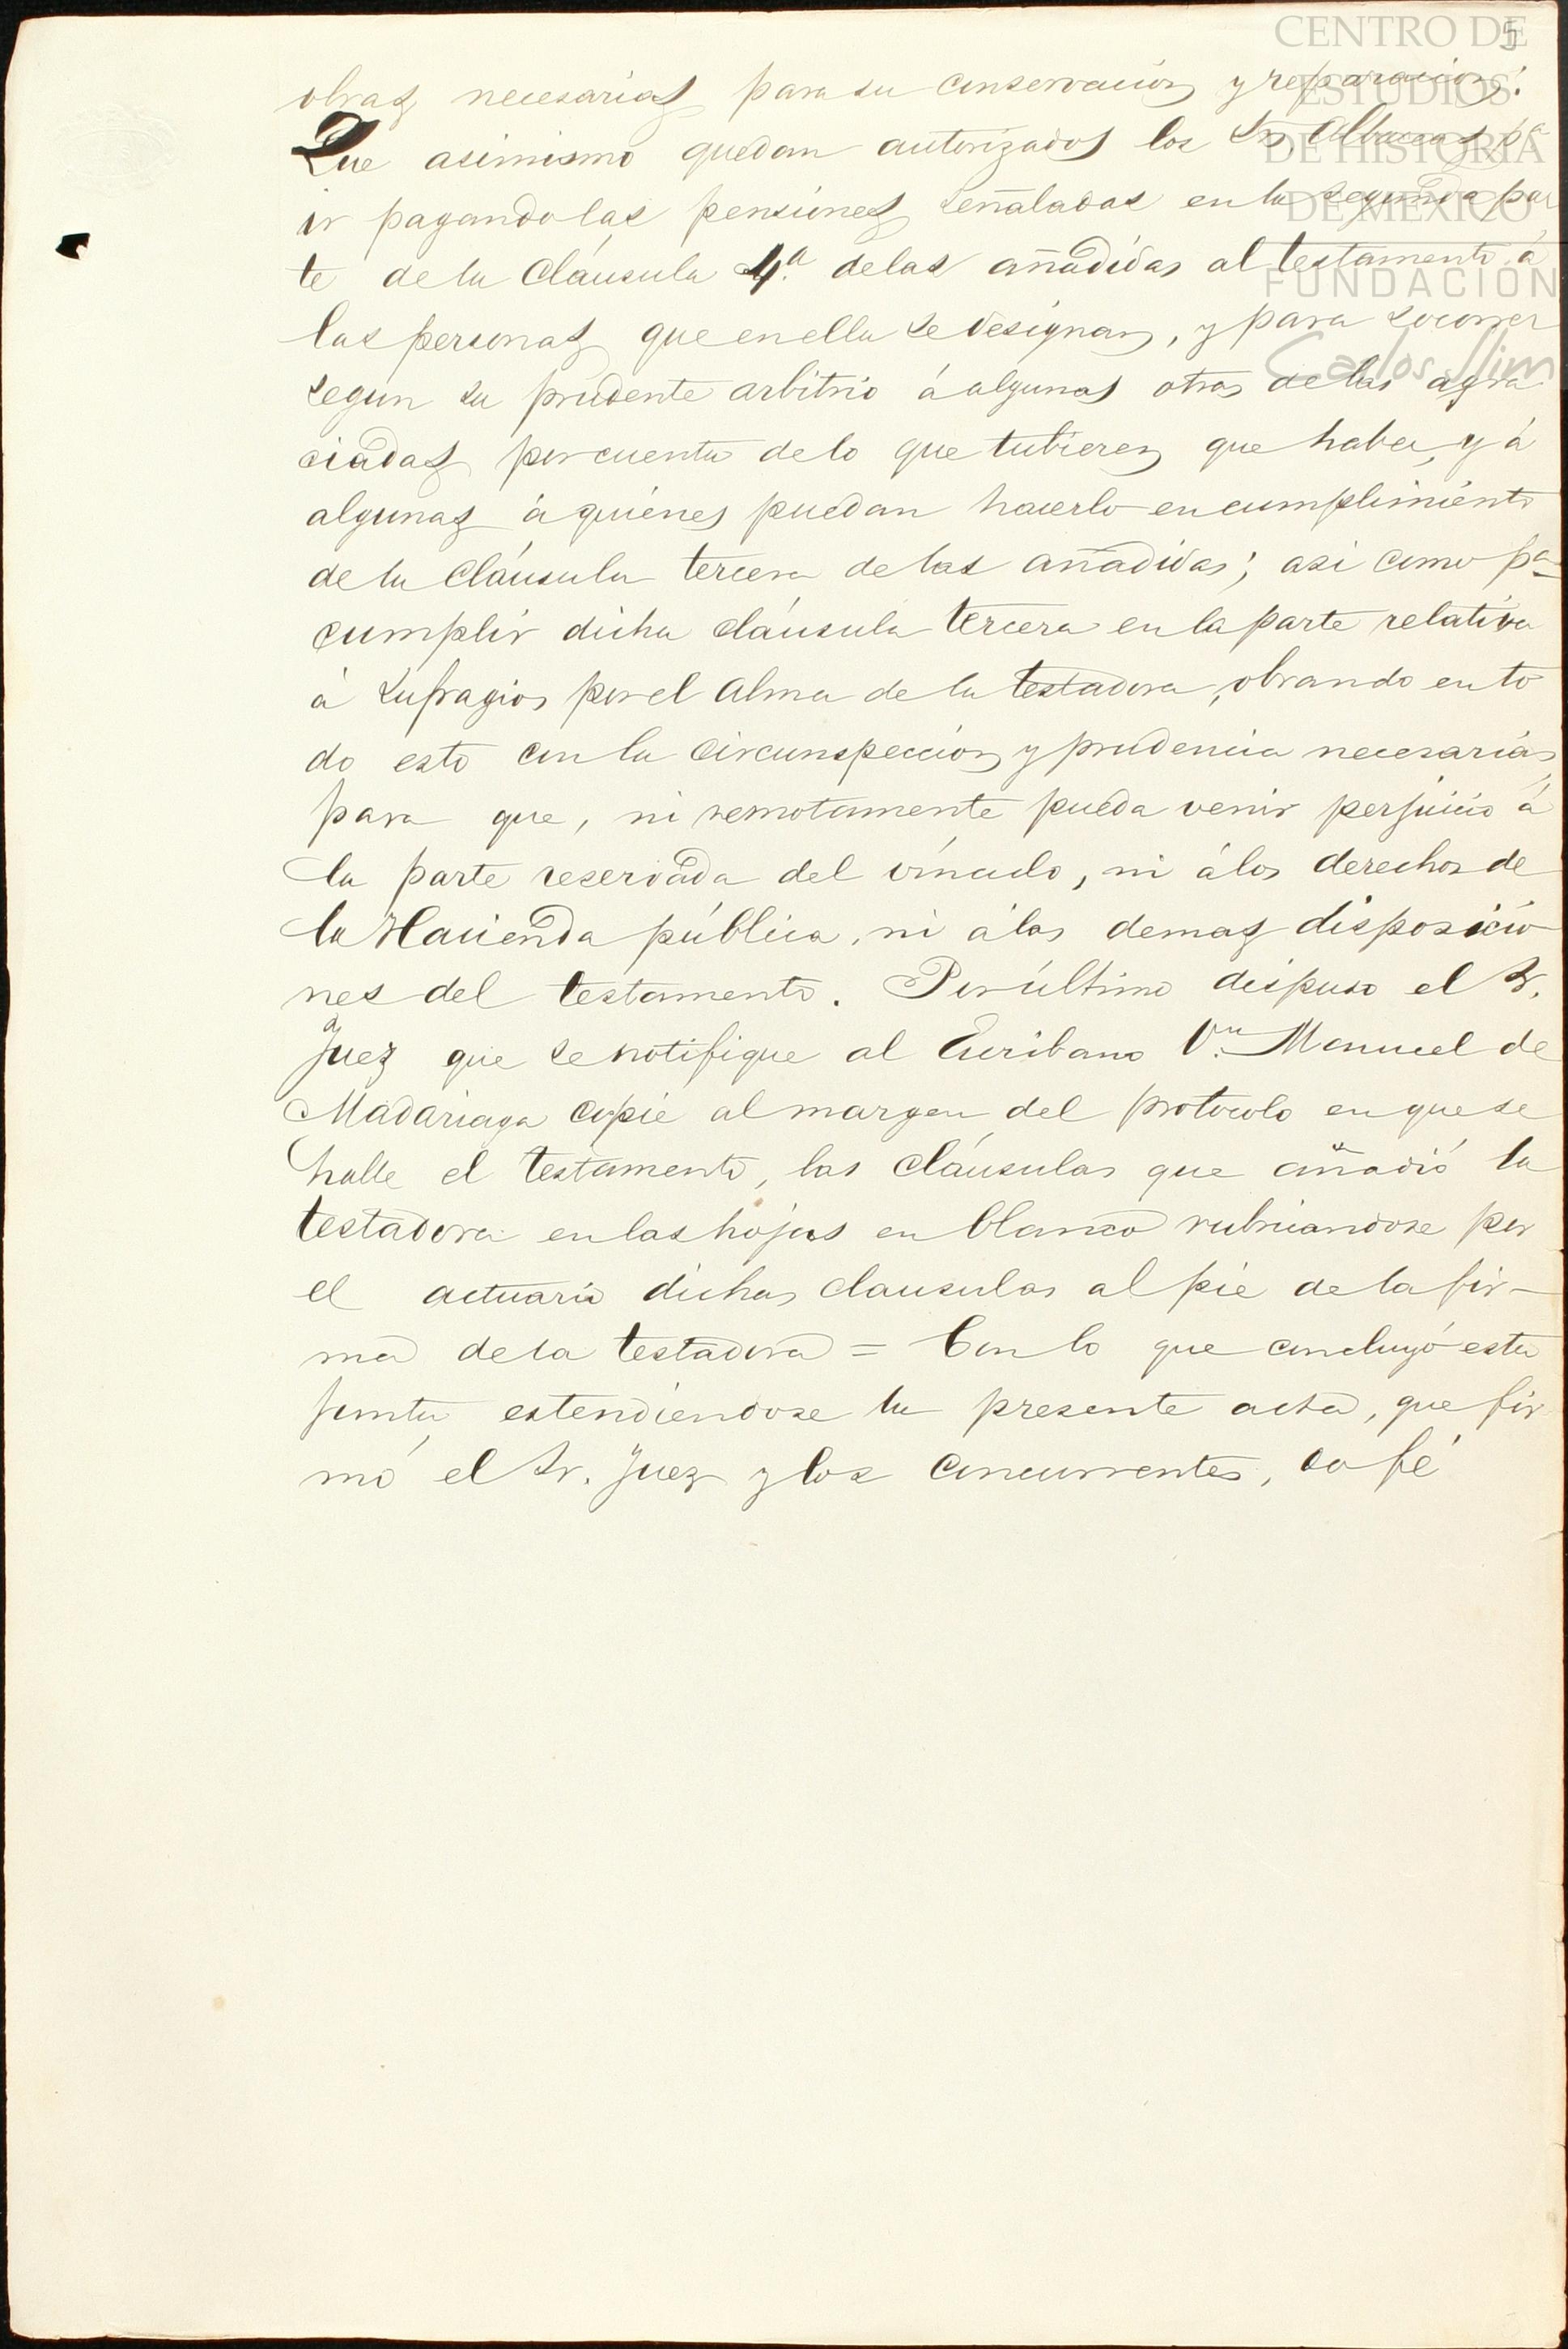 CENTRO DE
ESTUDIOS
DE HISTORIA
DE MÉXICO
FUNDACIÓN
Carlos Slim
5
obras necesarias para su conservacion y reparacion:
Que asimismo quedan autorizados los Sres. Albaceas pa
ir pagando las pensiones señaladas en la segunda par
te de la Cláusula 4.a de las añadidas al testamento á
las personas que en ella se designan, y para socorrer
segun su prudente arbitrio á algunas otras de las agra
ciadas por cuenta de lo que tubieren que haber, y á
algunas á quienes puedan hacerlo en cumplimiento
de la Cláusula tercera de las añadidas; asi como pa
cumplir dicha cláusula tercera en la parte relativa
á sufragios por el alma de la testadora, obrando en to
do esto con la circunspeccion y prudencia necesarias
para que, ni remotamente pueda venir perjuicio á
la parte reservada del vínculo, ni á los derechos de
la Hacienda pública, ni á las demas disposicio
nes del testamento. Por último dispuso el Sr.
Juez que se notifique al Escribano Dn. Manuel de
Madariaga copie al margen del protocolo en que se
halle el testamento, las cláusulas que añadió la
testadora en las hojas en blanco rubricandose por
el actuario dichas clausulas al pie de la fir-
ma de la testadora = Con lo que concluyó esta
junta, estendiendose la presente acta, que fir
mó el Sr. Juez y los concurrentes, doy fé